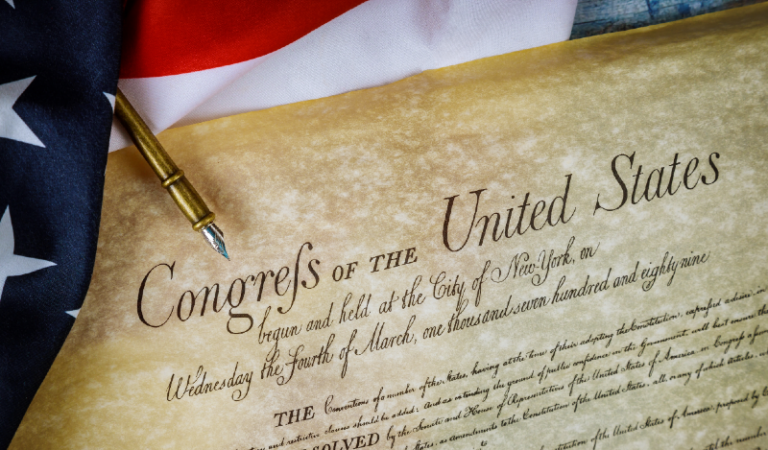 Congreſs OF THE United States
begun and held at the City of New-York, on
Wednesday the Fourth of March, one thousand seven hundred and eighty nine
THE Conventions of a number of the States, having at the time of their adopting the Constitution, expreſsed a desire in
and restrictive clauses should be added: And as extending the ground of public confidence in the Government, will best ensure the
SOLVED by the Senate and House of Representatives of the United States of America in Congreſs
States, as amendments to the Constitution of the United States, all, or any of which Articles,
Constitution of the United States of America, proposed by
of the United States